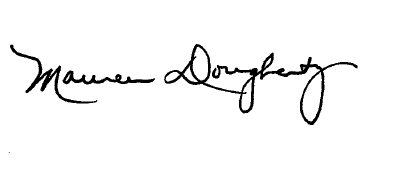 Maureen Dougherty